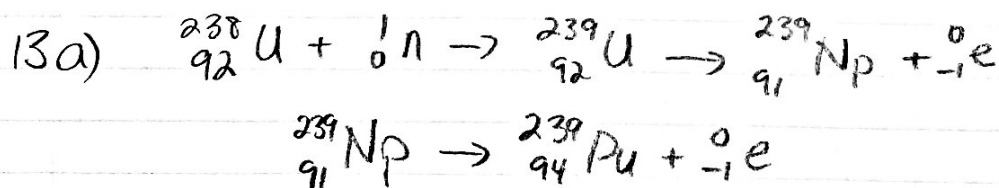 13a) ²³⁸₉₂U + ¹₀n → ²³⁹₉₂U → ²³⁹₉₁Np + ⁰₋₁e
²³⁹₉₁Np → ²³⁹₉₄Pu + ⁰₋₁e